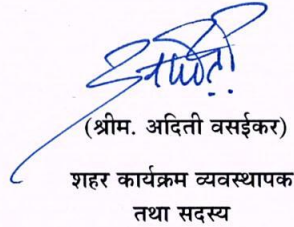 (श्रीम. अदिती वसईकर)
शहर कार्यक्रम व्यवस्थापक
तथा सदस्य